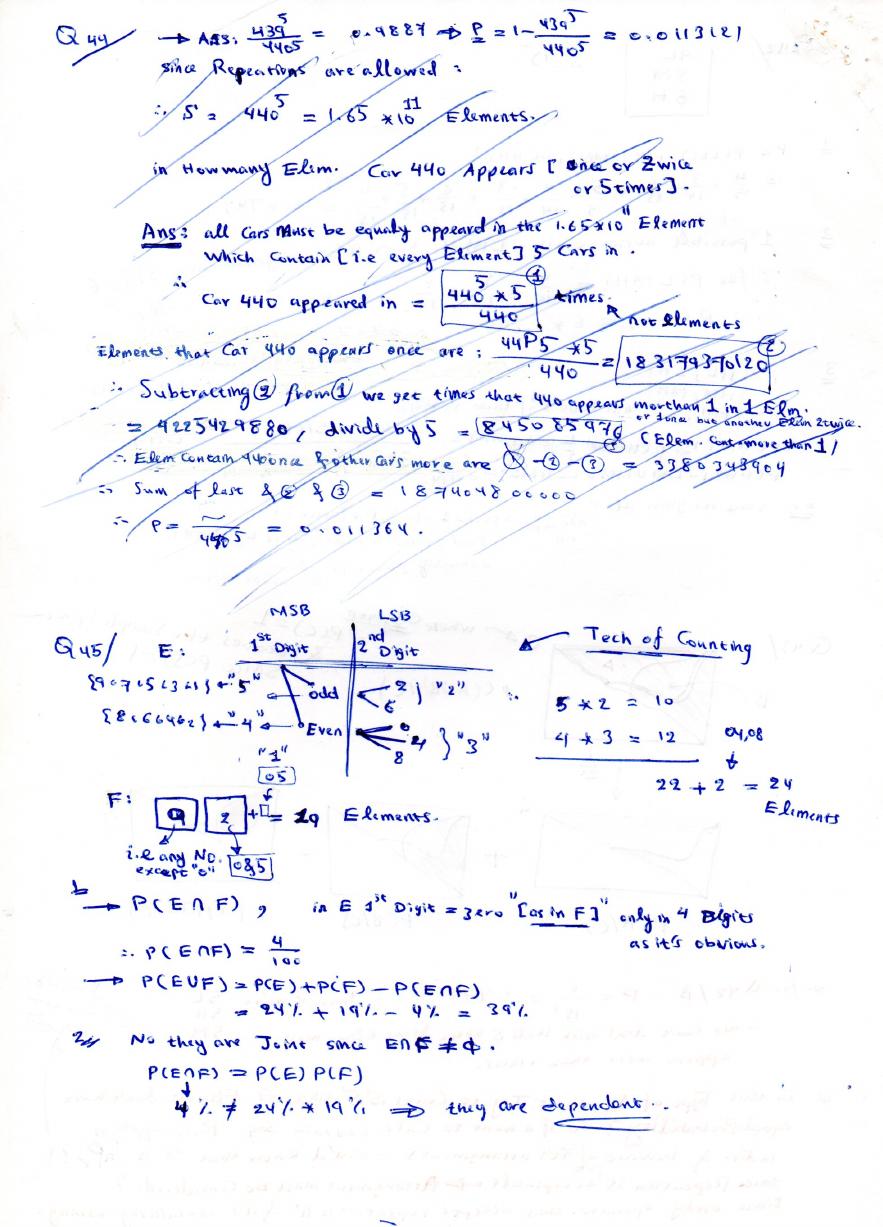 Q 44 → Ans: 439^5 / 440^5 = 0.9887 ⇒ P = 1 - 439^5 / 440^5 = 0.0113121
since Repeations are allowed :
∴ S = 440^5 = 1.65 * 10^11 Elements.
in How many Elem. Car 440 Appears [ once or Zwice
or 5times ].
Ans : all Cars Must be equaly appeard in the 1.65*10^11 Element
which Contain [ i.e every Element ] 5 Cars in .
∴
Car 440 appeared in = 440^5 * 5 / 440 ① times.
not Elements
Elements that Car 440 appears once are : 44P5 * 5 / 440 = 183179370120 ②
∴ Subtracting ② from ① we get times that 440 appears morthan 1 in 1 Elm.
or 1once but another Elem 2twice.
= 4225429880, divide by 5 = 845085976 ③ (Elem. Cont. more than 1)
∴ Elem Contain 440once & other Car's more are ① - ② - ③ = 3380343904
∴ Sum of last & ② & ③ = 187404800000
∴ P = ~ / 440^5 = 0.011364 .
MSB LSB
Q 45/ E : 1st Digit 2nd Digit ← Tech of Counting
{9,7,5,3,1} ← "5" ← odd 2 6 } "2" ∴ 5 * 2 = 10
{8,6,4,2} ← "4" ← Even 0 4 8 } "3" 4 * 3 = 12 04,08
"1"
05 22 + 2 = 24
Elements
F : 9 2 + □ = 19 Elements.
i.e any No. except "0" 0&5
1 → P(E ∩ F) , in E 1st Digit = zero "[as in F]" only in 4 Digits
as it's obvious.
∴ P(E∩F) = 4 / 100
→ P(E∪F) = P(E) + P(F) - P(E∩F)
= 24% + 19% - 4% = 39%.
2// No they are Joint since E∩F ≠ ϕ .
P(E∩F) = P(E) P(F)
4 % ≠ 24% * 19% ⇒ they are dependent..